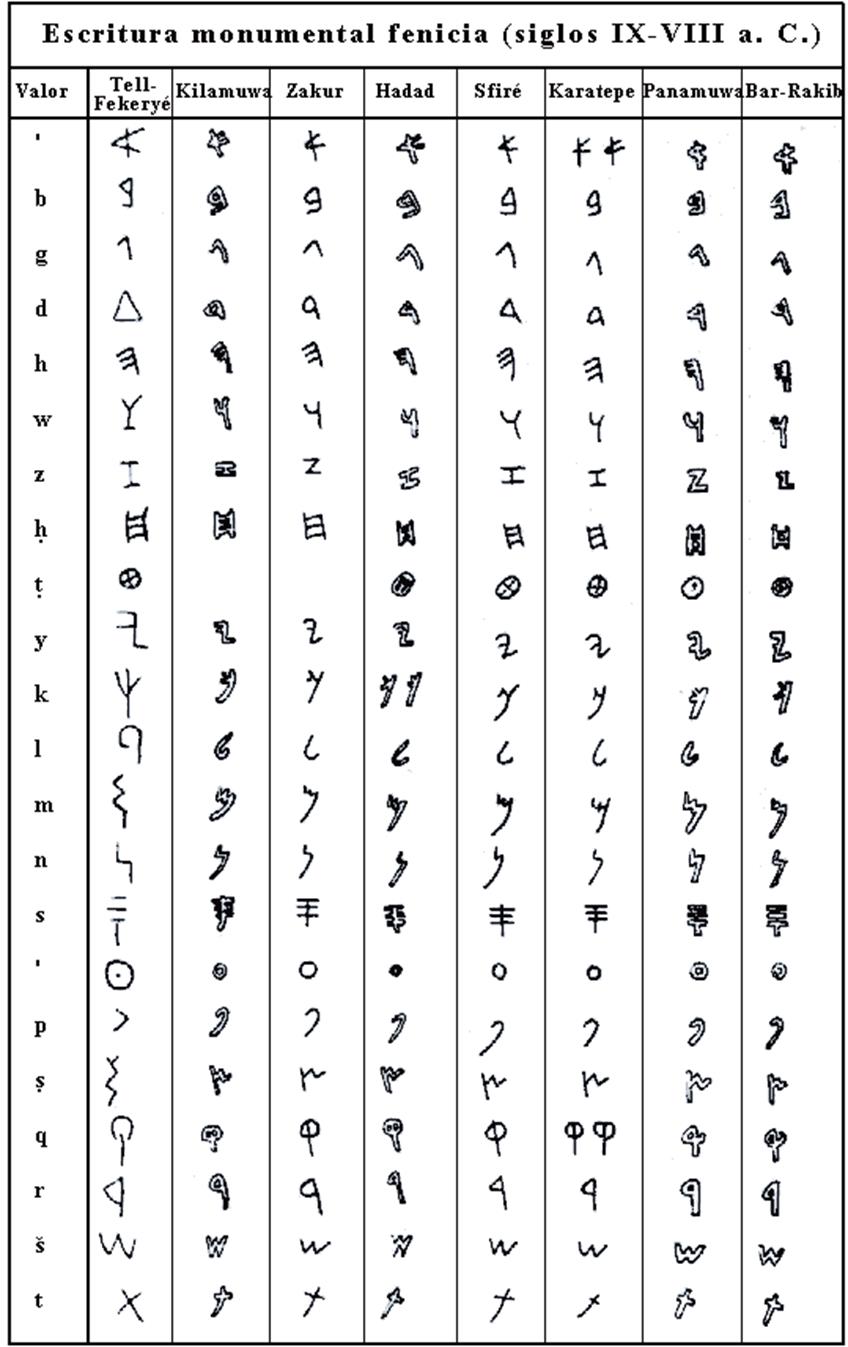 Escritura monumental fenicia (siglos IX-VIII a. C.)
Valor Tell-Fekeryé Kilamuwa Zakur Hadad Sfiré Karatepe Panamuwa Bar-Rakib
' 𐤀 𐤀 𐤀 𐤀 𐤀 𐤀 𐤀 𐤀 𐤀
b 𐤁 𐤁 𐤁 𐤁 𐤁 𐤁 𐤁 𐤁
g 𐤂 𐤂 𐤂 𐤂 𐤂 𐤂 𐤂 𐤂
d 𐤃 𐤃 𐤃 𐤃 𐤃 𐤃 𐤃 𐤃
h 𐤄 𐤄 𐤄 𐤄 𐤄 𐤄 𐤄 𐤄
w 𐤅 𐤅 𐤅 𐤅 𐤅 𐤅 𐤅 𐤅
z 𐤆 𐤆 𐤆 𐤆 𐤆 𐤆 𐤆 𐤆
ḥ 𐤇 𐤇 𐤇 𐤇 𐤇 𐤇 𐤇 𐤇
ṭ 𐤈 𐤈 𐤈 𐤈 𐤈 𐤈
y 𐤉 𐤉 𐤉 𐤉 𐤉 𐤉 𐤉 𐤉
k 𐤊 𐤊 𐤊 𐤊 𐤊 𐤊 𐤊 𐤊 𐤊
l 𐤋 𐤋 𐤋 𐤋 𐤋 𐤋 𐤋 𐤋
m 𐤌 𐤌 𐤌 𐤌 𐤌 𐤌 𐤌 𐤌
n 𐤍 𐤍 𐤍 𐤍 𐤍 𐤍 𐤍 𐤍
s 𐤎 𐤎 𐤎 𐤎 𐤎 𐤎 𐤎 𐤎
' 𐤏 𐤏 𐤏 𐤏 𐤏 𐤏 𐤏 𐤏
p 𐤐 𐤐 𐤐 𐤐 𐤐 𐤐 𐤐 𐤐
ṣ 𐤑 𐤑 𐤑 𐤑 𐤑 𐤑 𐤑 𐤑
q 𐤒 𐤒 𐤒 𐤒 𐤒 𐤒 𐤒 𐤒 𐤒
r 𐤓 𐤓 𐤓 𐤓 𐤓 𐤓 𐤓 𐤓
š 𐤔 𐤔 𐤔 𐤔 𐤔 𐤔 𐤔 𐤔
t 𐤕 𐤕 𐤕 𐤕 𐤕 𐤕 𐤕 𐤕